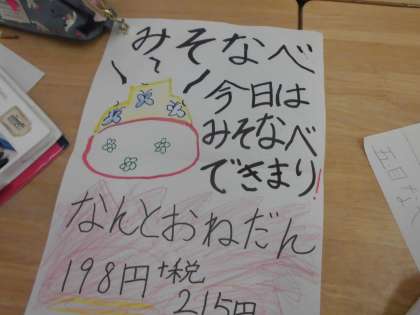 みそなべ
今日は
みそなべ
できまり!
なんとおねだん
198円+税
215円